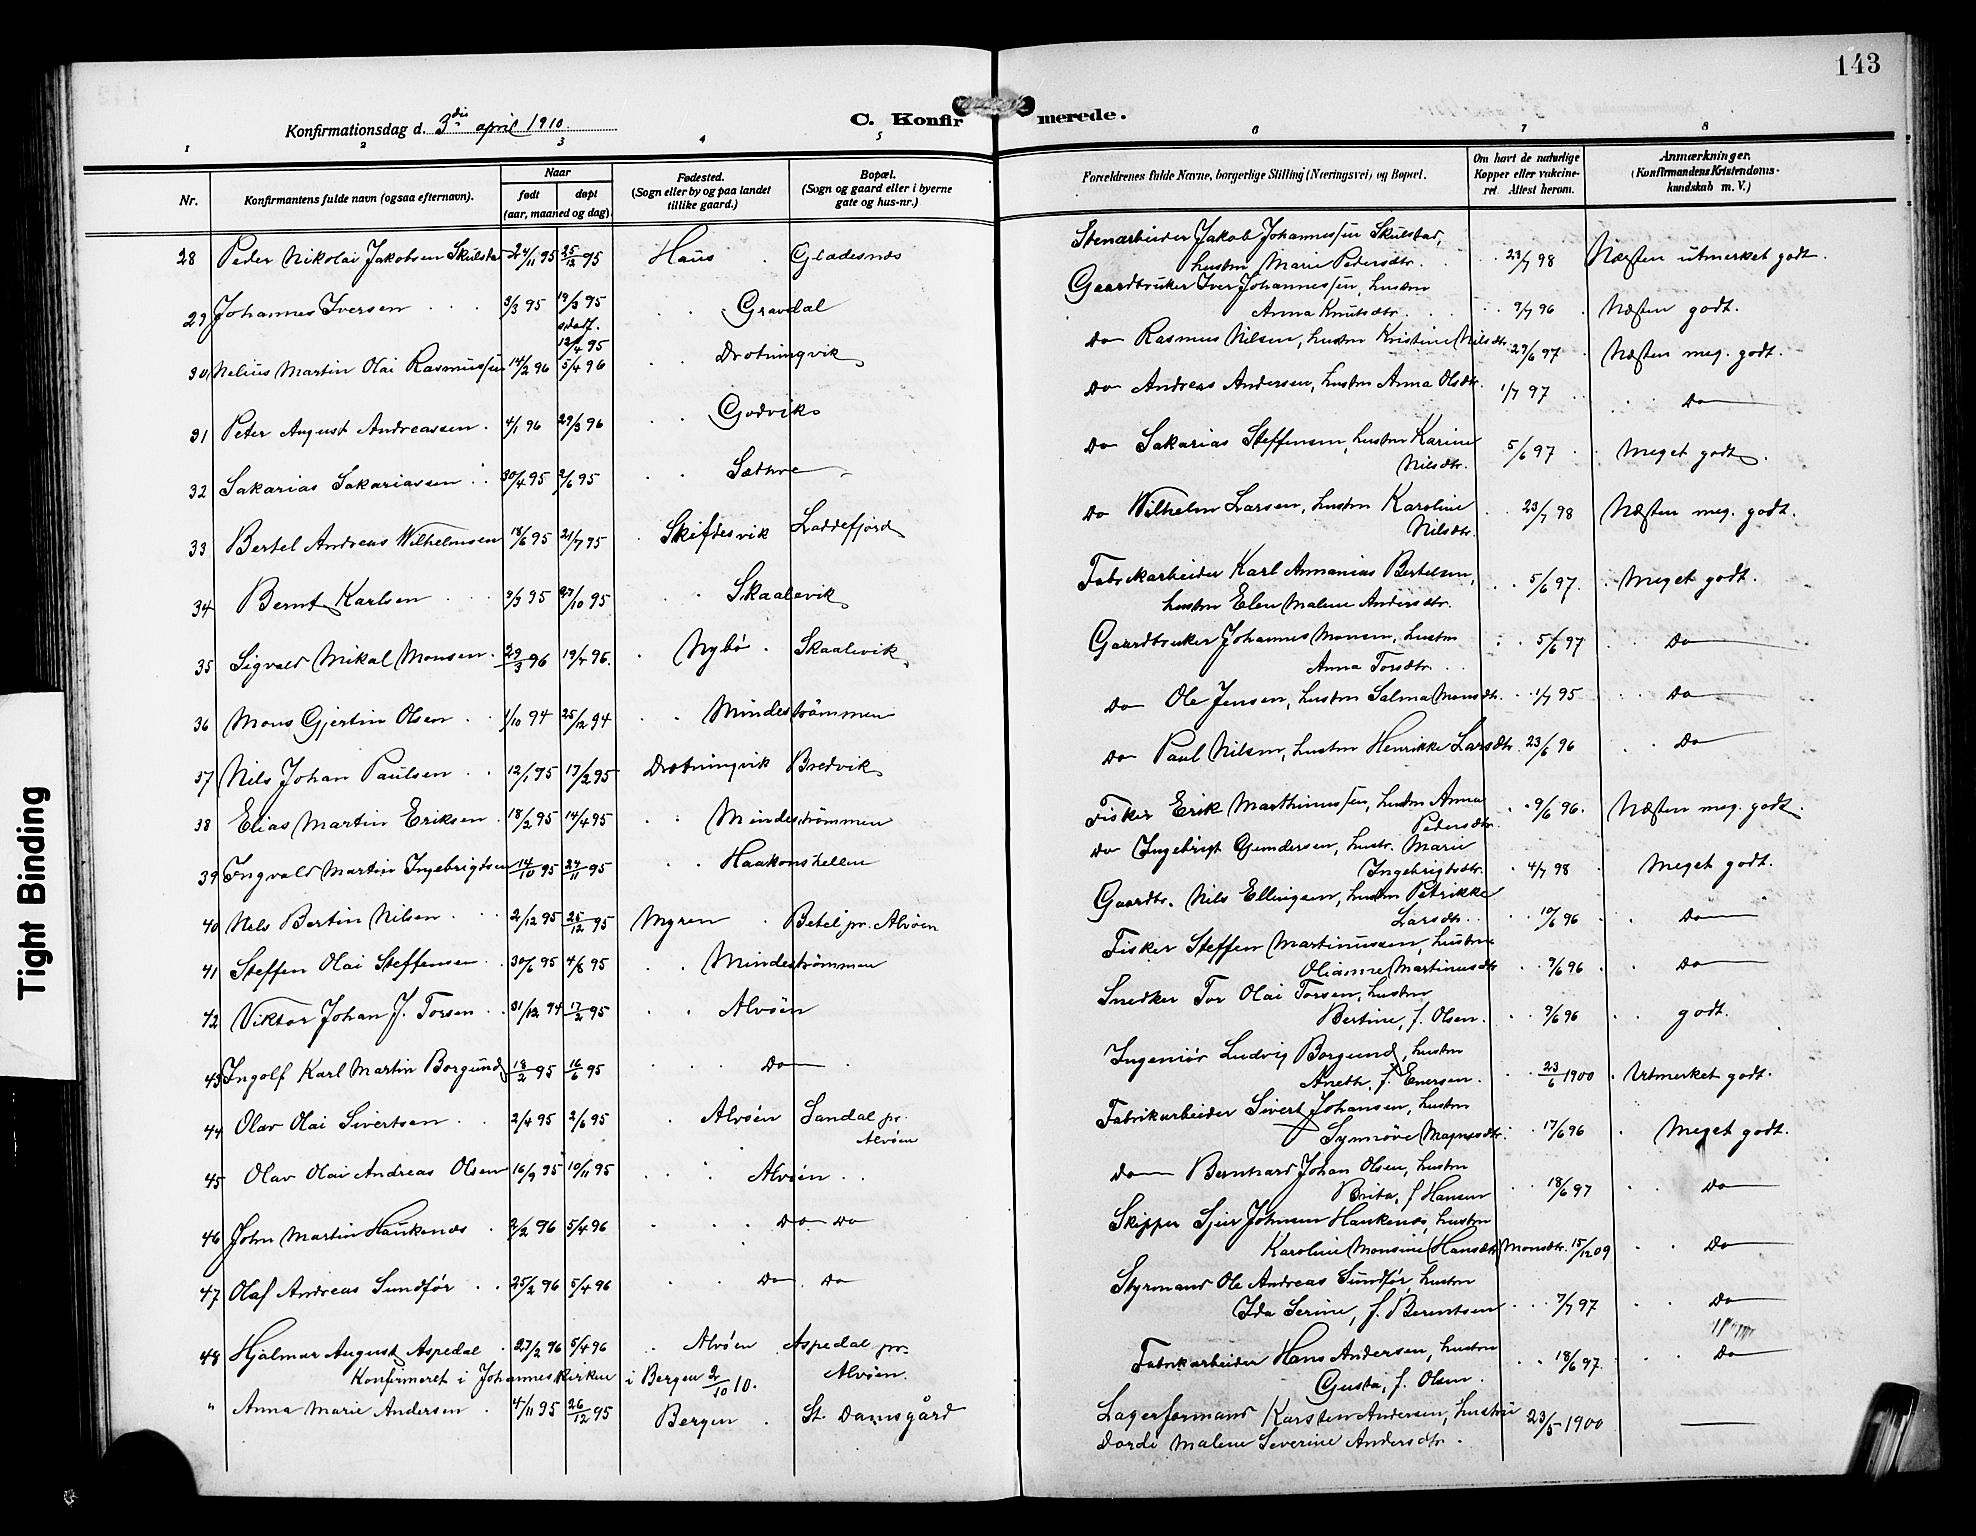 143
Konfirmationsdag d. 3die april 1910
C. Konfirmerede.
1 2 3 4 5 6 7 8
Nr. Konfirmantens fulde navn (ogsaa efternavn). Naar født døpt (aar, maaned og dag). Fødested. (Sogn eller by og paa landet tillike gaard.) Bopæl. (Sogn og gaard eller i byerne gate og hus-nr.) Forældrenes fulde Navne, borgerlige Stilling (Næringsvei) og Bopæl. Om havt de naturlige Kopper eller vakcineret. Attest herom. Anmærkninger. (Konfirmandens Kristendomskundskab m. V.)
28 Peder Nikolai Jakobsen Skulstad 24/11 95 25/12 95 Haus Gladesnes Stenarbeider Jakob Johannessen Skulstad, hustru Marie Pedersdtr. 23/7 98 Næsten utmerket godt.
29 Johannes Iversen 3/3 95 19/3 95 stadf. 12/4 95 Gravdal Gaardbruker Iver Johannessen, hustru Anna Knutsdtr. 9/7 96 Næsten godt.
30 Nelius Martin Olai Rasmussen 14/2 96 5/4 96 Drotningvik Do Rasmus Nilsen, hustru Kristine Nilsdtr 29/6 97 Næsten meg. godt.
31 Peter August Andreassen 4/1 96 29/3 96 Godvik Do Andreas Andersen, hustru Anna Olsdtr. 1/7 97 Do
32 Sakarias Sakariassen 30/4 95 2/6 95 Sætre Do Sakarias Steffensen, hustru Karine Nilsdtr. 5/6 97 Meget godt.
33 Bertel Andreas Wilhelmsen 18/6 95 21/7 95 Skiftesvik Loddefjord Do Wilhelm Larsen, hustru Karoline Nilsdtr. 23/7 98 Næsten meg. godt.
34 Bernt Karlsen 9/9 95 27/10 95 Skaalevik Fabrikarbeider Karl Ananias Bertelsen, hustru Elen Malene Andersdtr. 5/6 97 Meget godt.
35 Sigvald Mikal Monsen 29/3 96 19/7 96. Nybø Skaalevik Gaardbruker Johannes Monsen, hustru Anna Torsdtr. 5/6 97 Do
36 Mons Gjertin Olsen 1/10 94 25/12 94 Mindeströmmen Do Ole Jensen, hustru Salma Monsdtr. 1/7 95 Do
37 Nils Johan Paulsen 12/1 95 17/2 95 Drotningvik Bredvik Do Paul Nilsen, hustru Henrikke Larsdtr. 23/6 96 Do
38 Elias Martin Eriksen 18/2 95 14/4 95 Mindeströmmen Fisker Erik Marthinussen, hustru Anna Pedersdtr. 9/6 96. Næsten meg. godt.
39 Ingvald Martin Ingebrigtsen 14/10 95 24/11 95 Haakonshellen Do Ingebrigt Gundersen, hustr. Marie Ingebrigtsdtr. 4/7 98 Meget godt.
40 Nils Bertin Nilsen 2/12 95 26/12 95 Myren Betel pr. Alvöen Gaardbr. Nils Ellingsen, hustru Petrikke Larsdtr. 10/6 96 Do
41 Steffen Olai Steffensen 30/6 95 4/8 95 Mindeströmmen Fisker Steffen Martinussen, hustru Olianne Martinusdtr 9/6 96 Do
42 Viktor Johan J. Torsen 31/12 94 17/2 95 Alvöen Snedker Tor Olai Torsen, hustru Bertine, f. Olsen. 9/6 96 godt.
43 Ingolf Karl Martin Borgund 18/2 95 16/6 95 Do Ingeniör Ludvig Borgund, hustru Aneth, f. Enersen. 23/6 1900 Utmerket godt.
44 Olav Olai Sivertsen 2/4 95 2/6 95 Alvöen Sandal pr. Alvöen Fabrikarbeider Sivert Johansen, hustru Synnöve Magnesdtr. 17/6 96 Meget godt.
45 Olav Olai Andreas Olsen 16/9 95 10/11 95 Alvöen Do Bernhard Johan Olsen, hustru Brita, f Hansen 18/6 97 Do
46 John Martin Haukenæs 2/2 96 5/4 96 Do Do Skipper Sjur Johnsen Haukenæs, hustru Karoline Monsine (Hansdtr) Monsdtr. 15/12 09 Do
47 Olaf Andreas Sundför 25/2 96 5/4 96 Do Do Styrmand Ole Andreas Sundför, hustru Ida Serine, f. Berentsen 7/7 97 Do
48 Hjalmar August Aspedal 27/2 96 5/4 96 Alvöen Aspedal pr. Alvöen. Fabrikarbeider Hans Andersen, hustru Gusta, f. Olsen. 18/6 97. Do
Konfirmeret i Johannes Kirken i Bergen 2/10 10.
" Anna Marie Andersen 4/11 95 26/12 95 Bergen St. Damsgård Lagerformand Karsten Andersen, hustru Dordi Malene Severine Andersdtr. 23/5 1900
Tight Binding